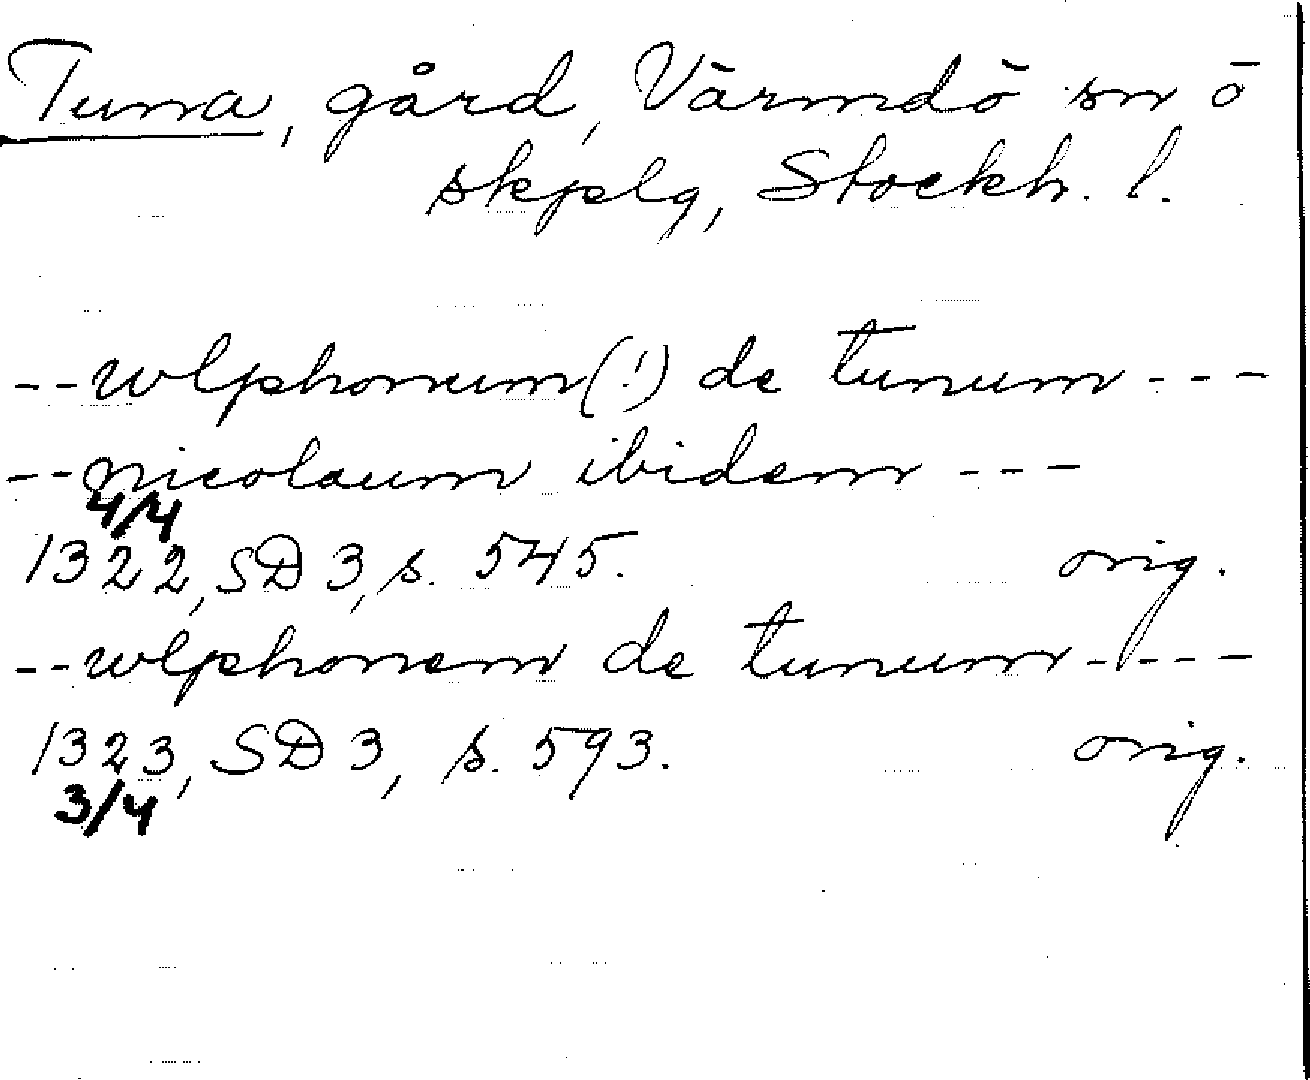 Tuna, gård, Värmdö sn o
skjslg, Stockh. l.
--wlphonum(!) de tunum---
--nicolaum ibidem---
4/4
1322, SD 3, s. 545. orig.
--wlphonem de tunum----
1323, SD 3, s. 593. orig.
3/4